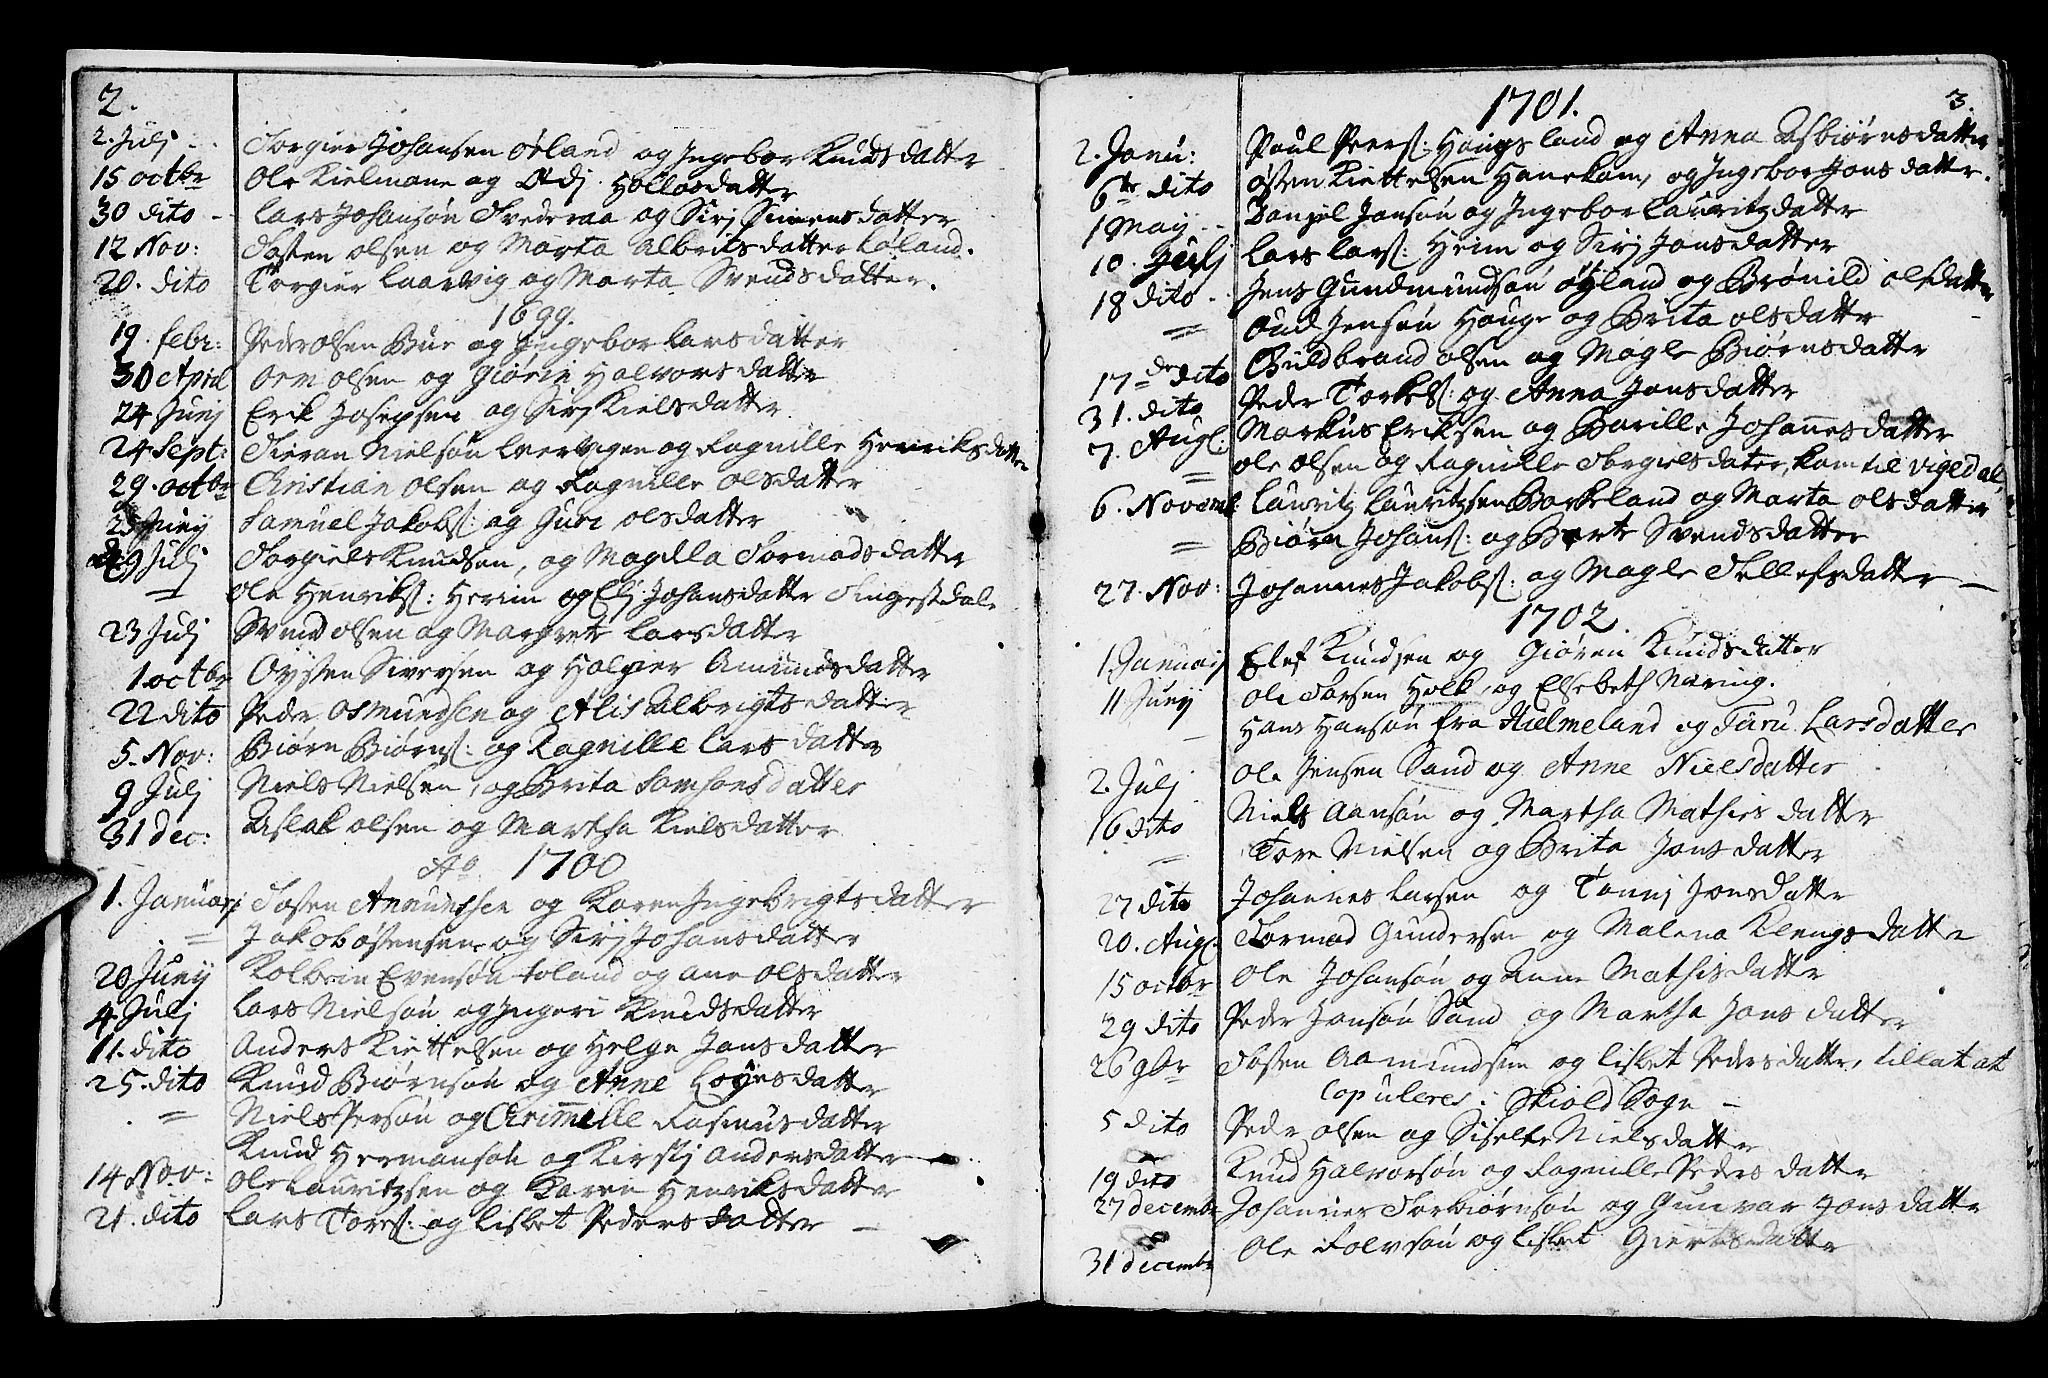 2.
2. Julj Torgier Johansen Øvland og Ingebor Knudsdatter
15 octbr Ole Kielmane og Odj Hollosdatter
30 dito Lars Johansøn Svederaa og Sirj Simensdatter
12 Nov: Tosten olsen og Marta albritsdatter Løland.
20. dito Torgier Laarvig og Marta Svendsdatter.
1699.
19. febr: Peder olsen Bue og Ingebor Larsdatter
30 April Orm olsen og Giørin Halvorsdatter
24 Junj Erik Josepsen og Sirj Kielsdatter
24 Sept: Nielsøn og Ragnille Henriksdatter
29. octbr Christian olsen og Ragnille olsdatter
25 Junij Samuel Jakobs: og Guri olsdatter
9 Julj Torgiels Knudsen, og Magdlla Tormodsdatter
= Ole Henriks: Herim og Elj Johansdatter
23 Julj Svend olsen og Margrete Larsdatter
1. octbr Oysten Siversen og Holgier Amundsdatter
22 dito Peder Osmundsen og Alis albrigtsdatter
5. Nov: Biørn Biørns: og Ragnille Larsdatter
9 Julj Niels Nielsen, og Brita Samsonsdatter
31 dec: Aslak olsen og Martha Kielsdatter
Ao 1700
1. Januarj Tosten Amundsen og Karen Ingebrigtsdatter
= Jakob østensen og Sirj Johansdatter
20 Junij Kolbein Evensøn Løland og ane olsdatter
4 Julj Lars Nielsøn og Ingeri Knudsdatter
11. dito Anders Kiettelsen og Helge Jonsdatter
25. dito Knud Biørnsøn og Anne Loyesdatter
= Niels Persøn og Crimmelle Rasmusdatter
Knud Hermansøn og Kirstj Andersdatter
14 Nov: Ole Lauritzsen og Karen Henriksdatter
21. dito Lars Tores: og Lisbet Pedersdatter
3.
1701.
2. Janu: Poul Peers: Haugsland og Anna Asbiørnsdatter
6te dito østen Kiettelsen Hanekam, og Ingebor Jonsdatter.
1 May Danjel Jonsøn og Ingebor Lauritzdatter
10. Julj Lars Lars: Heim og Sirj Jonsdatter
18 dito Jens Gundmundsøn øfland og Brønild olsdatter
= Oud Jensøn Hauge og Brita olsdatter
17de dito Guldbrand olsen og Magle Biørnsdatter
31. dito Peder Torkels: og Anna Jonsdatter
7. Augs: Markus Eriksen og Barille Johannesdatter
= ole olsen og Ragnille Torgielsdater, kom til Vigedal,
6. Novemb: Lauritz Lauritzsen Bakeland og Marta olsdatter
= Biørn Johans: og Berte Svendsdatter
27. Nov: Johannes Jakobs: og Magle Tellefsdatter
1702.
1 Januarij Elef Knudsen og Giøren Knudsdatter
11 Junij ole Torsen Holk, og Elsebeth Næring.
Hans Hansøn fra Hielmeland og Turu Larsdatter
2. Julj Ole Jensen Sand og Anne Nielsdatter
16 dito Niels Aansøn og Martha Mathiesdatter
= Tore Nielsen og Brita Jonsdatter
27 dito Johannes Larsen og Tonnj Jonsdatter
20. Augs: Tormod Gundersen og Malena Klengsdatter
15 octbr Ole Johansøn og Anne Mathisdatter
29 dito Peder Jonsøn Sand og Martha Jonsdatter
26 9br Tosten Aamundsen og Lisbet Pedersdatter, tillat at
Copuleres i Skiold Sogn
5 dito Peder olsen og Siselle Nielsdatter
19 dito Knud Halvorsøn og Ragnille Pedersdatter
27 decembr Johannes Torbiørnsøn og Gunvar Jonsdatter
31 decembr Ole Rolvsøn og Lisbet Giertsdatter